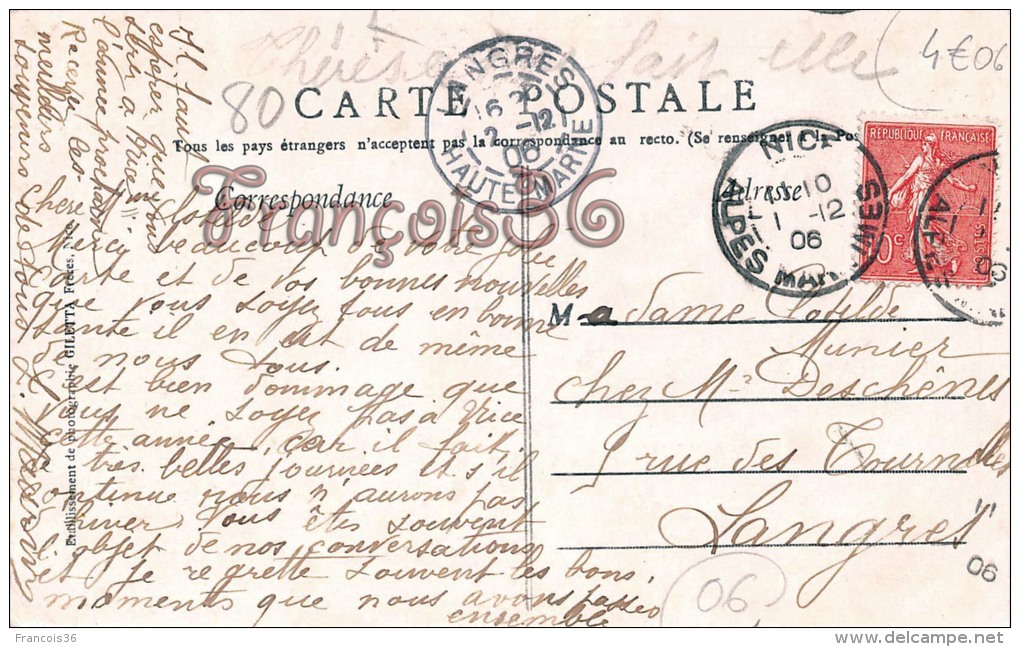 Thérèse fait elle
4€06
80
CARTE POSTALE
Tous les pays étrangers n'acceptent pas la correspondance au recto. (Se renseigner à la Pos
Correspondance
Adresse
François36
LANGRES
16
2 -12
06
HAUTE MARNE
NICE
10
1 -12
06
ALPES MARITIMES
REPUBLIQUE FRANÇAISE
10c
Chère Clotilde
Merci beaucoup de votre jolie
carte et de vos bonnes nouvelles
que vous soyez tous en bonne
santé il en est de même
de nous tous.
est bien dommage que
vous ne soyez pas à Nice
cette année, car il fait
très belles journées et s'il
continue nous n'aurons pas
d'hiver vous êtes souvent
l'objet de nos conversations
et je regrette souvent les bons
moments que nous avons passés
ensemble
Il faut
espérer que vous
l'année prochaine
Recevez les
meilleurs
souvenirs de tous
Etablissement de photographie GILETTA Frères, Nice
Madame Clotilde
Munier
chez Mr Deschênes
9 rue des Tournelles
Langres
06
06
Francois36
delcampe.net